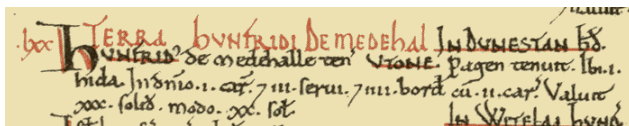 .lxx. TERRA HVNFRIDI DE MEDEHAL IN DVNESTAN HĐ.
HVNFRID' de medehalle ten' VTONE. Pagen tenuit. Ibi.i.
hida. In dn̄io.i. car'. 7 iii. serui. 7 iiii. bord' cū.ii. car'. Valuit
xxx. solid. modo. xx. sol'.
IN WITELAI HVND'